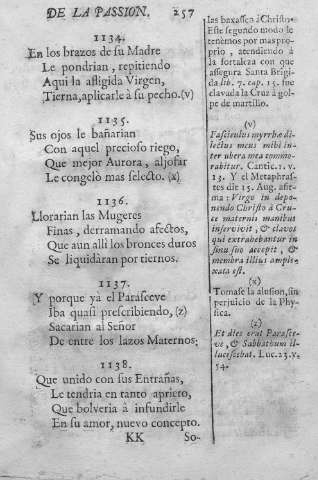 DE LA PASSION. 257
1134.
En los brazos de su Madre
Le pondrian, repitiendo
Aqui la afligida Virgen,
Tierna, aplicarle à su pecho. (v)
1135.
Sus ojos le bañarian
Con aquel precioso riego,
Que mejor Aurora, aljofar
Le congelò mas selecto. (x)
1136.
Llorarian las Mugeres
Finas, derramando afectos,
Que aun alli los bronces duros
Se liquidàran por tiernos.
1137.
Y porque yà el Parasceve
Iba quasi prescribiendo, (z)
Sacarian al Señor
De entre los lazos Maternos;
1138.
Que unido con sus Entrañas,
Le tendria en tanto aprieto,
Que bolveria à infundirle
En su amor, nuevo concepto.
KK So-
las baxassen à Christo.
Este segundo modo le
tenèmos por mas pro-
prio, atendiendo à
la fortaleza con que
assegura Santa Brigi-
da lib. 7. cap. 15. fue
clavada la Cruz à gol-
pe de martillo.
(v)
Fasciculus myrrhæ di-
lectus meus mihi in-
ter ubera mea commo-
rabitur. Cantic. 1. v.
13. Y el Metaphras-
tes die 15. Aug. afir-
ma: Virgo in depo-
nendo Christo à Cru-
ce maternis manibus
inservivit, & clavos
qui extrahebantur in
sinu suo accepit, &
membra illiusample-
xata est.
(x)
Tomase la alusion, sin
perjuicio de la Phy-
sica.
(z)
Et dies erat Parasce-
ve, & Sabbatum il-
lucescebat. Luc. 23. v.
54.